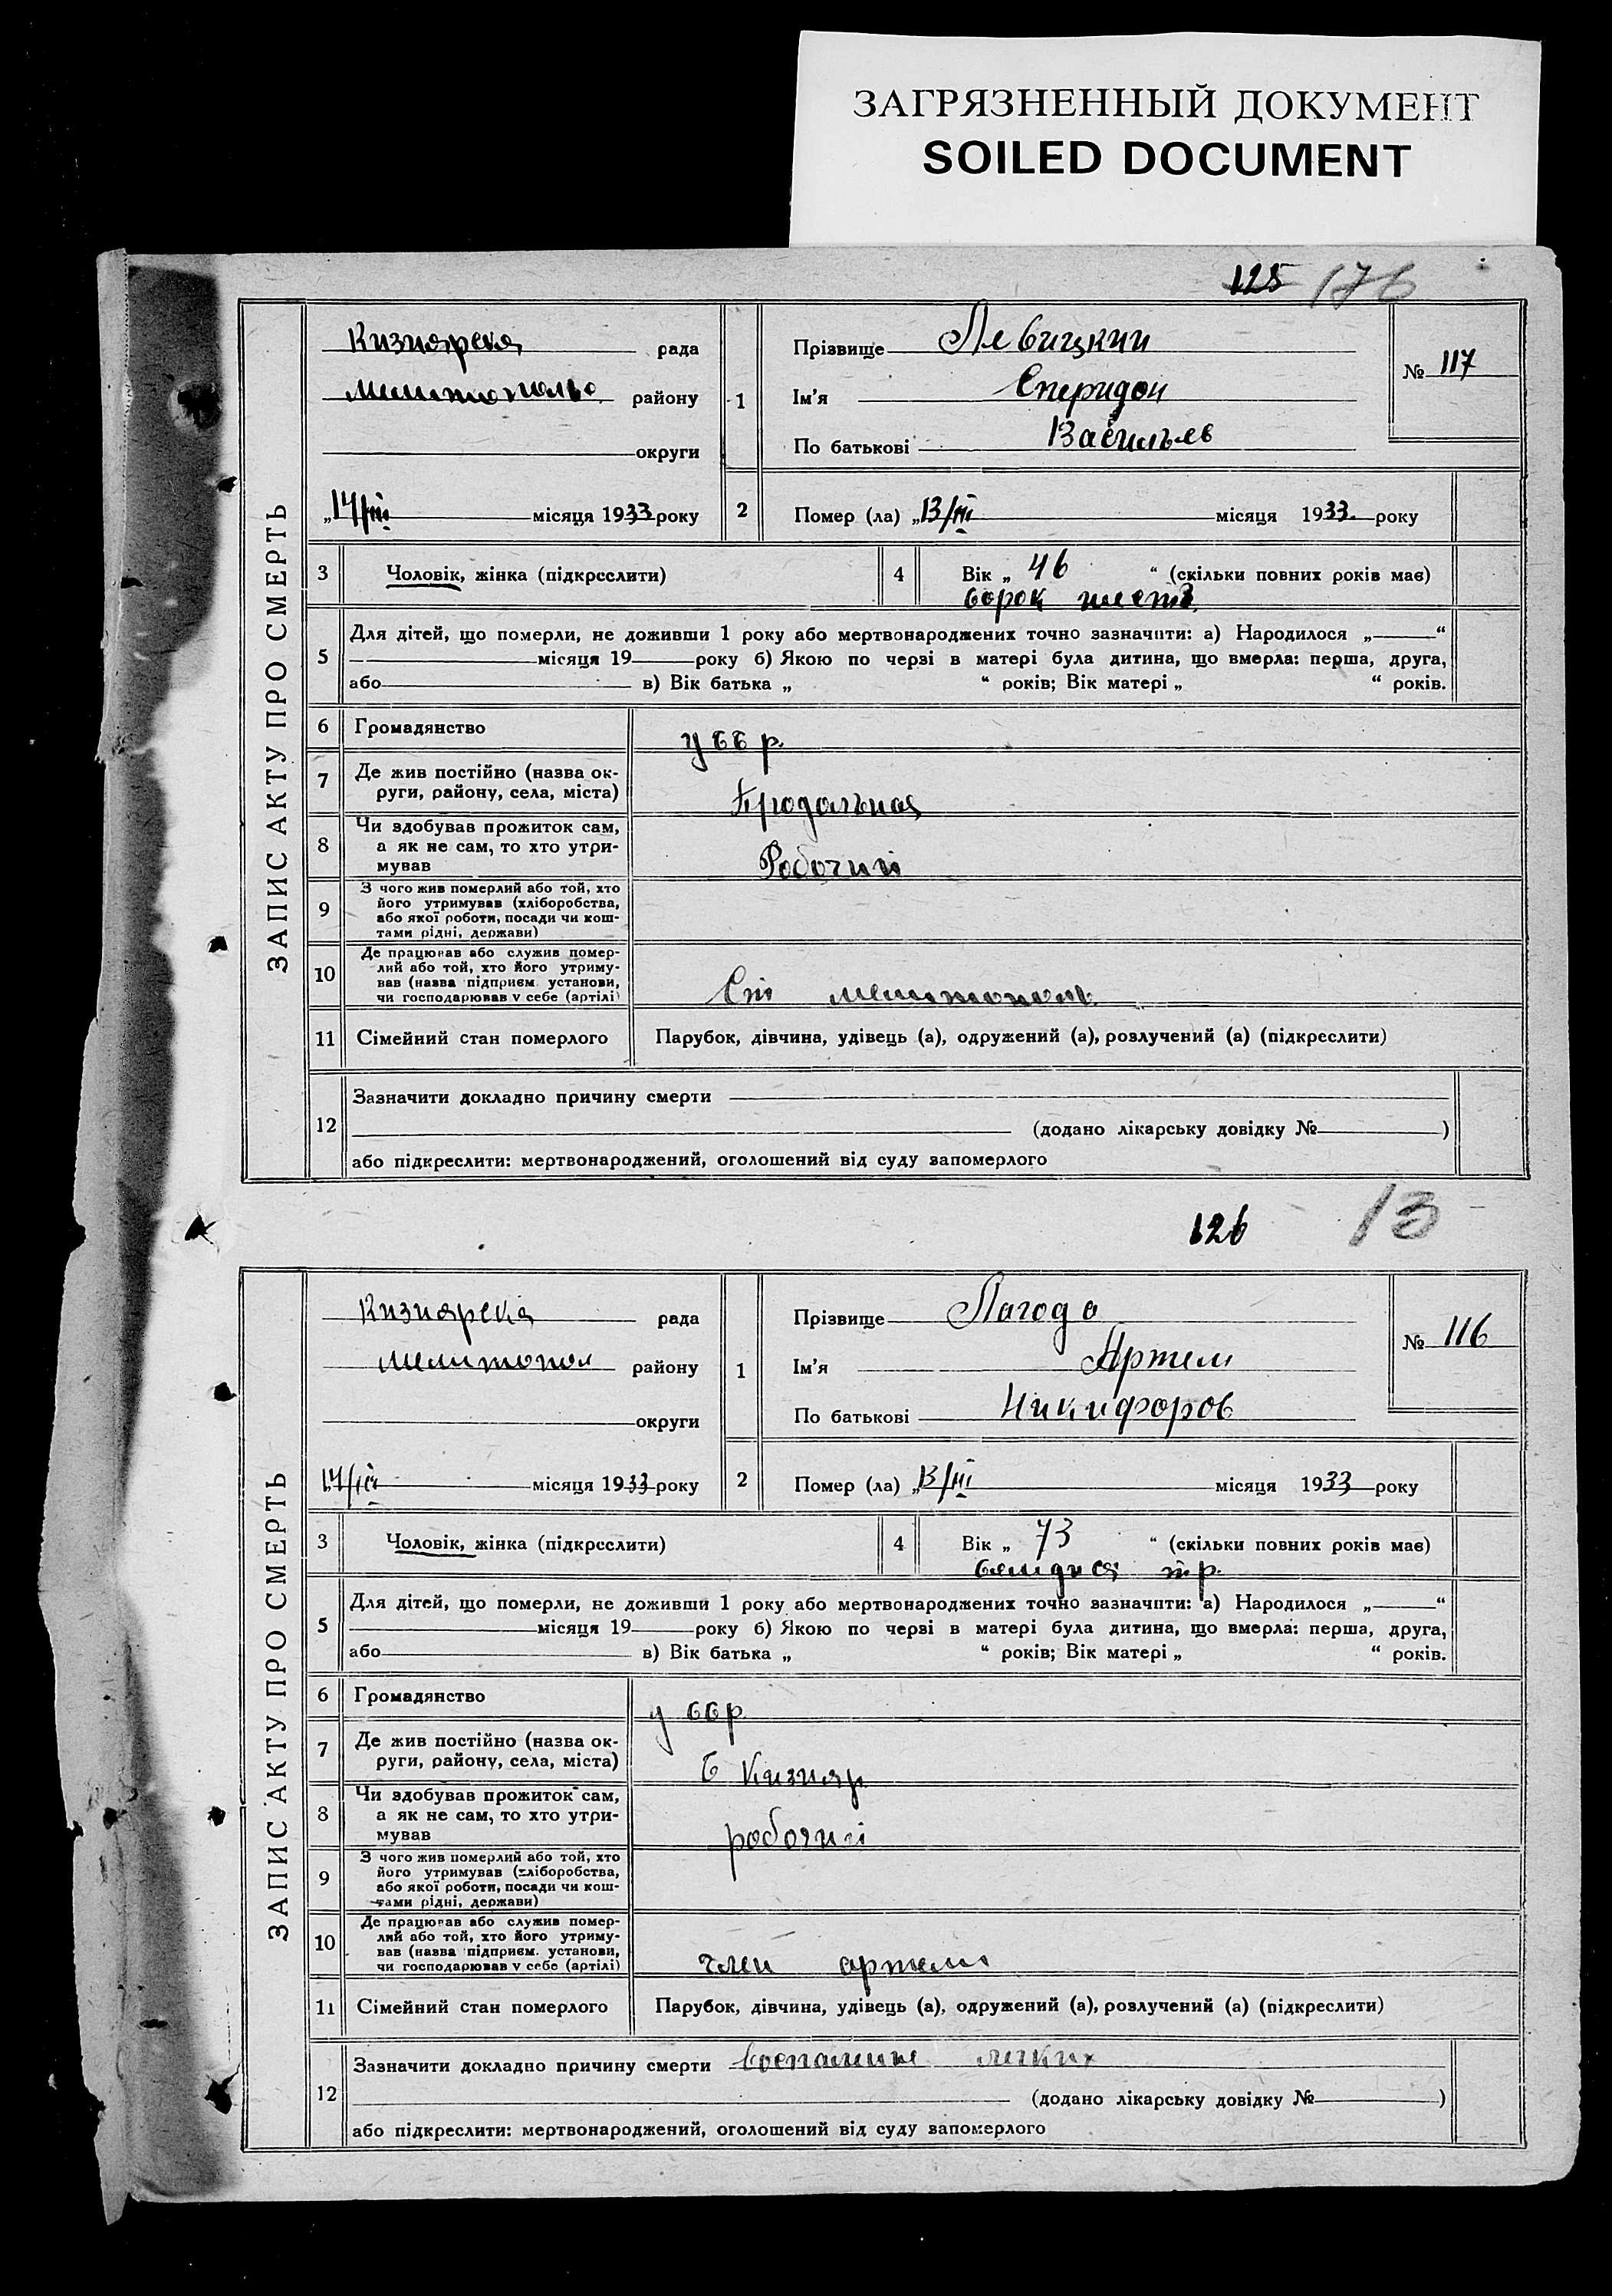 ЗАГРЯЗНЕННЫЙ ДОКУМЕНТ
SOILED DOCUMENT
125 176
ЗАПИС АКТУ ПРО СМЕРТЬ
Кизиярска рада
району
округи
„14/III місяця 1933 року
1
Прізвище Левицкий
Ім'я Сперидон
По батькові Васильев
№ 117
2
Помер (ла) „13/III місяця 1933. року
3 Чоловік, жінка (підкреслити)
4 Вік „ 46 “ (скільки повних років має)
сорок шесть
5 Для дітей, що померли, не доживши 1 року або мертвонароджених точно зазначити: а) Народилося „ “
місяця 19 року б) Якою по черзі в матері була дитина, що вмерла: перша, друга,
або в) Вік батька „ “ років; Вік матері „ “ років.
6 Громадянство
усср.
7 Де жив постійно (назва ок-
руги, району, села, міста)
8 Чи здобував прожиток сам,
а як не сам, то хто утри-
мував
Робочий
9 З чого жив померлий або той, хто
його утримував (хліборобства,
або якої роботи, посади чи кош-
тами рідні, держави)
10 Де працював або служив помер-
лий або той, хто його утриму-
вав (назва підприєм. установи,
чи господарював у себе (артілі)
Ст Мелитополь
11 Сімейний стан померлого
Парубок, дівчина, удівець (а), одружений (а), розлучений (а) (підкреслити)
12 Зазначити докладно причину смерти
(додано лікарську довідку № )
або підкреслити: мертвонароджений, оголошений від суду запомерлого
126 13
ЗАПИС АКТУ ПРО СМЕРТЬ
Кизиярска рада
Мелитопол району
округи
14/III місяця 1933 року
1
Прізвище Лагода
Ім'я Артем
По батькові Никифоров
№ 116
2
Помер (ла) „13/III місяця 1933 року
3 Чоловік, жінка (підкреслити)
4 Вік „ 73 “ (скільки повних років має)
тр.
5 Для дітей, що померли, не доживши 1 року або мертвонароджених точно зазначити: а) Народилося „ “
місяця 19 року б) Якою по черзі в матері була дитина, що вмерла: перша, друга,
або в) Вік батька „ “ років; Вік матері „ “ років.
6 Громадянство
усср
7 Де жив постійно (назва ок-
руги, району, села, міста)
с Кизияр
8 Чи здобував прожиток сам,
а як не сам, то хто утри-
мував
робочий
9 З чого жив померлий або той, хто
його утримував (хліборобства,
або якої роботи, посади чи кош-
тами рідні, держави)
10 Де працював або служив помер-
лий або той, хто його утриму-
вав (назва підприєм. установи,
чи господарював у себе (артілі)
член артели
11 Сімейний стан померлого
Парубок, дівчина, удівець (а), одружений (а), розлучений (а) (підкреслити)
12 Зазначити докладно причину смерти воспаление легких
(додано лікарську довідку № )
або підкреслити: мертвонароджений, оголошений від суду запомерлого